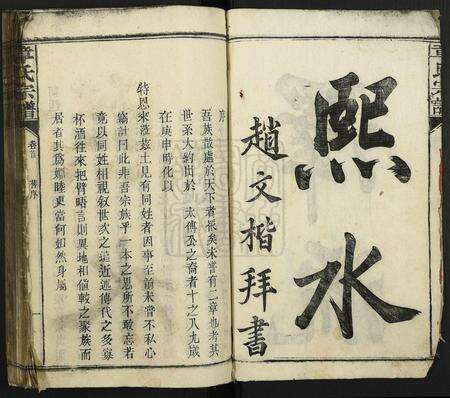 章氏宗譜
熙水
趙文楷拜書
序
吾族散處於天下者衆矣未嘗有二章也考其
世系大約出於 太傅公之裔者十之八九歲
在庚申時化以
特恩來涖茲土見有同姓者因事至前未嘗不私心
竊計曰此非吾宗族乎一本之思所不敢忘者
竟以同姓相視叙世次之遠近述傳代之多寡
杯酒往來把臂晤言則異地相値較之聚族而
居者其爲婣睦更當何如然身屬
章氏宗譜
卷首
舊序